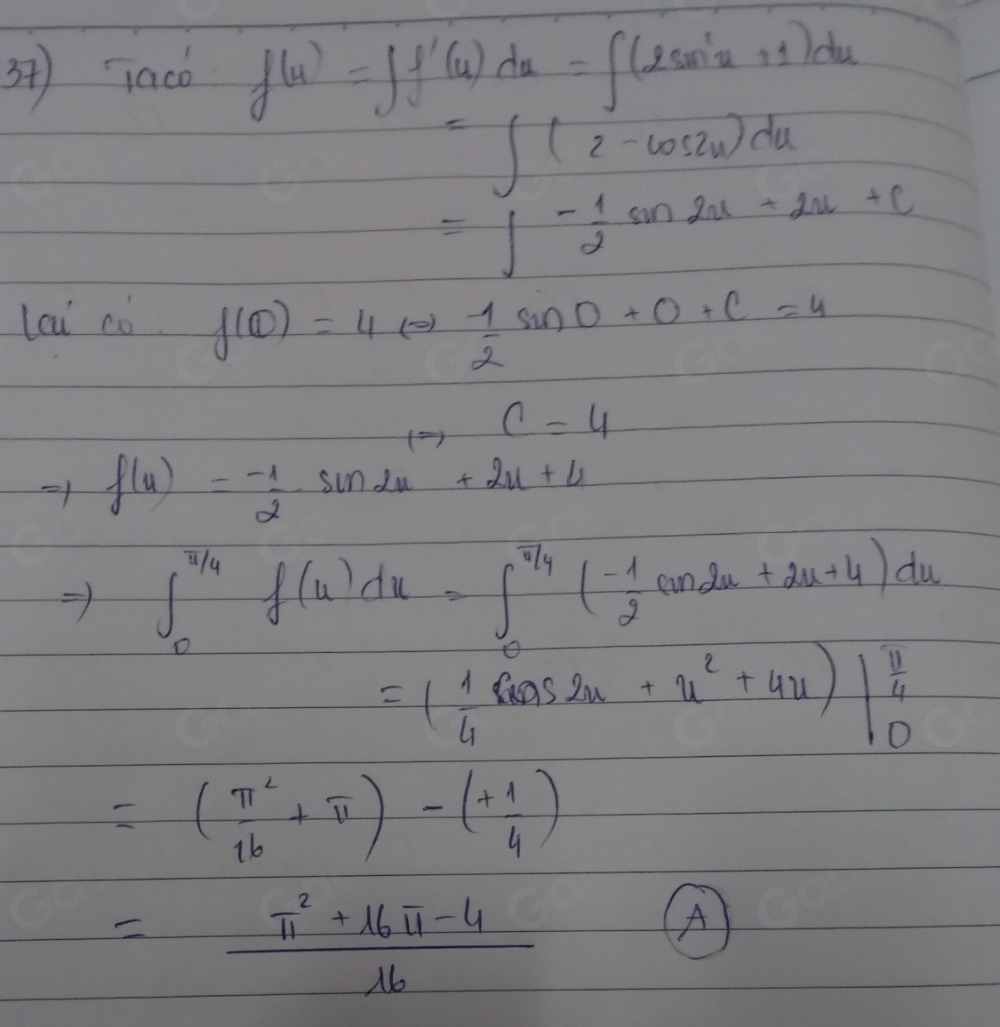 37) Ta có f(u) = ∫f'(u) du = ∫(2sin²u + 1)du
= ∫( 2 - cos2u) du
= ∫ -1/2 sin 2u + 2u + C
lại có f(0) = 4 <=> -1/2 sin 0 + 0 + C = 4
<=> C = 4
=> f(u) = -1/2 sin 2u + 2u + 4
=> ∫₀^(π/4) f(u) du = ∫₀^(π/4) (-1/2 sin 2u + 2u + 4) du
= (1/4 cos 2u + u² + 4u) |₀^(π/4)
= (π²/16 + π) - (+1/4)
= (π² + 16π - 4)/16 (A)